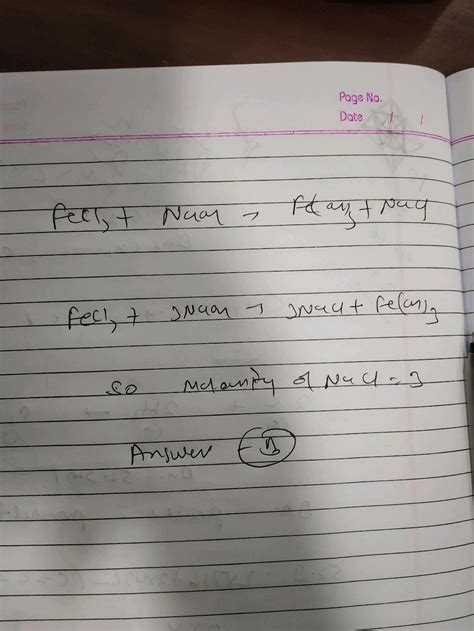 Page No.
Date / /
FeCl3 + NaOH → Fe(OH)3 + NaCl
FeCl3 + 3NaOH → 3NaCl + Fe(OH)3
So Molarity of NaCl = 3
Answer -